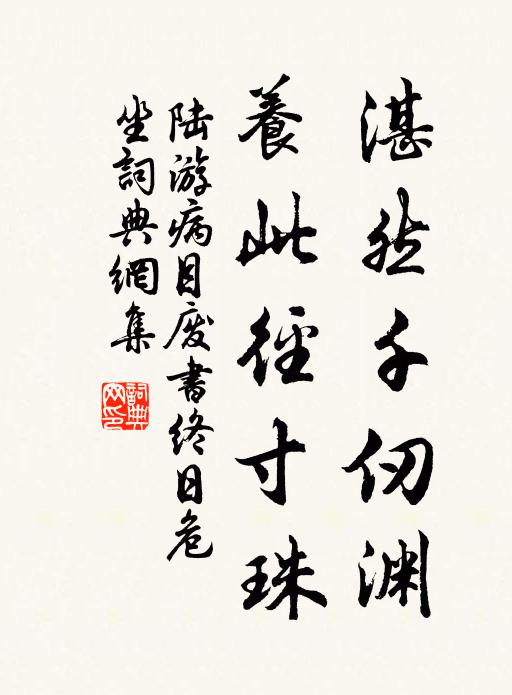 湛然千仞渊
養此徑寸珠
陆游病目废書终日危
坐詞典網集
詞典网印